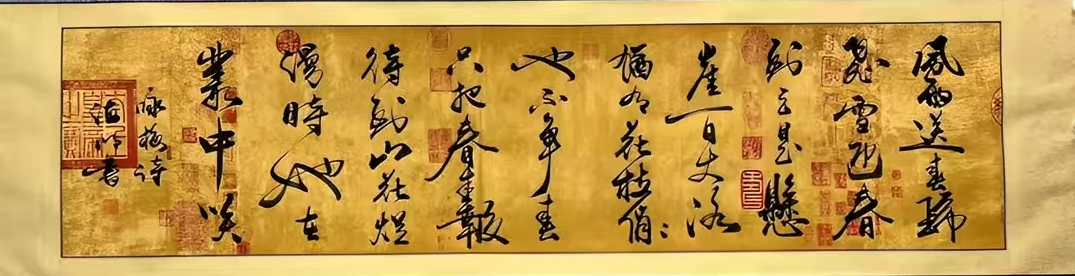 風雨送春歸
飛雪迎春
到已是懸
崖百丈冰
猶有花枝俏〻
也不爭春
只把春来報
待到山花爛
漫時她在
叢中笑
咏梅诗